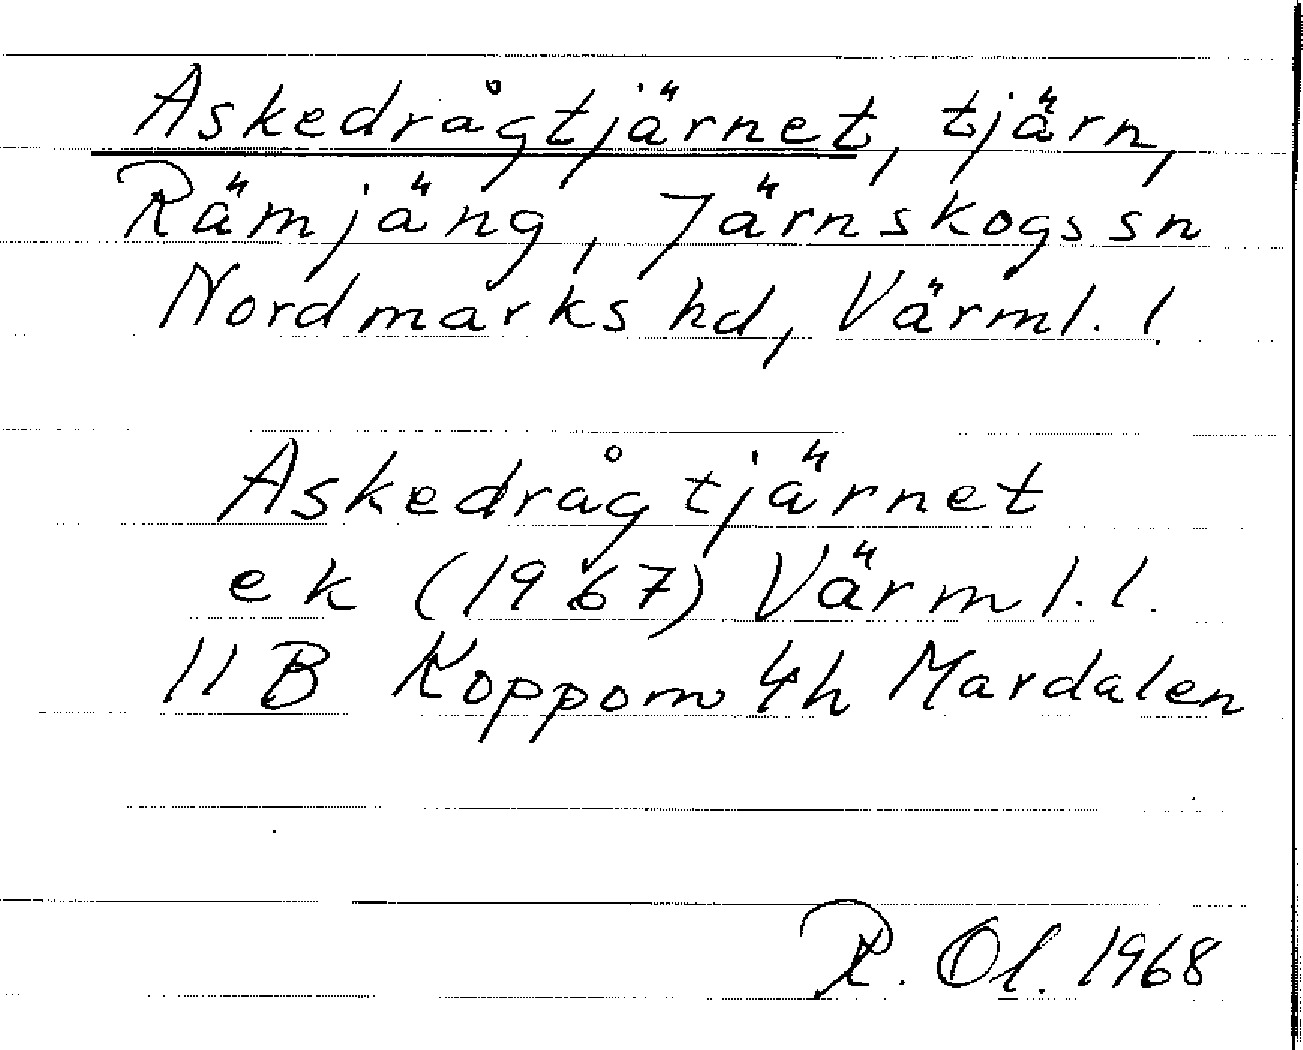 Askedrågtjärnet, tjärn,
Rämjäng, Järnskogs sn
Nordmarks hd, Värml. l.
Askedrågtjärnet
ek (1967) Värml. l.
11 B Koppom 4h Mardalen
R. Ol. 1968